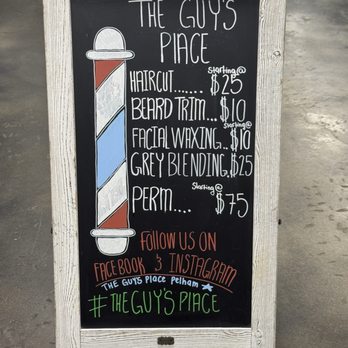 THE GUY'S
PLACE
Starting @
HAIRCUT....... $25
BEARD TRIM... $10
Starting @
FACIAL WAXING.. $10
GREY BLENDING.. $25
Starting @
PERM.... $75
FOLLOW US ON
FACEBOOK & INSTAGRAM
THE GUYS PLACE Pelham
#THEGUY'SPLACE